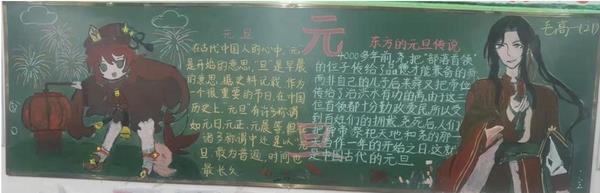 元旦
在古代中国人的心中,元
是开始的意思,旦是早晨
的意思.据史料记载,作为
一个很重要的节日,在中国
历史上,元旦有许多称谓
如元日,元正,元晨等,但
诸多称谓中还是以元
旦最为普遍,时间也
最长久
元
东方的元旦传说
4000多年前尧把"部落首领"
的位子传给了品德才能兼备的舜
而非自己的儿子后来舜又把帝位
传给了治水有功的禹,由于这三
位首领都十分勤政爱民所以受
到百姓们的拥戴尧死后人们
把舜帝祭祀天地和尧的那一
天当作一年的开始之日,这就
是中国古代的元旦
毛高一(21)